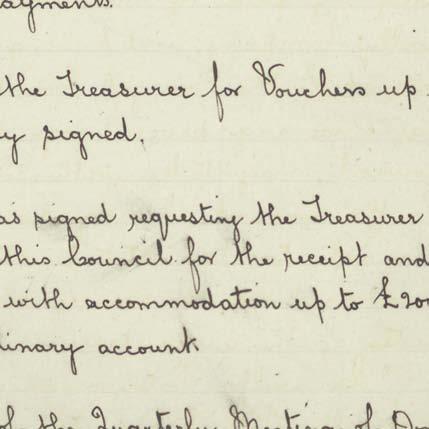 the Treasurer for Vouchers up
signed.
signed requesting the Treasurer
this Council for the receipt and
with accommodation up to
account
of the Quarterly Meeting of